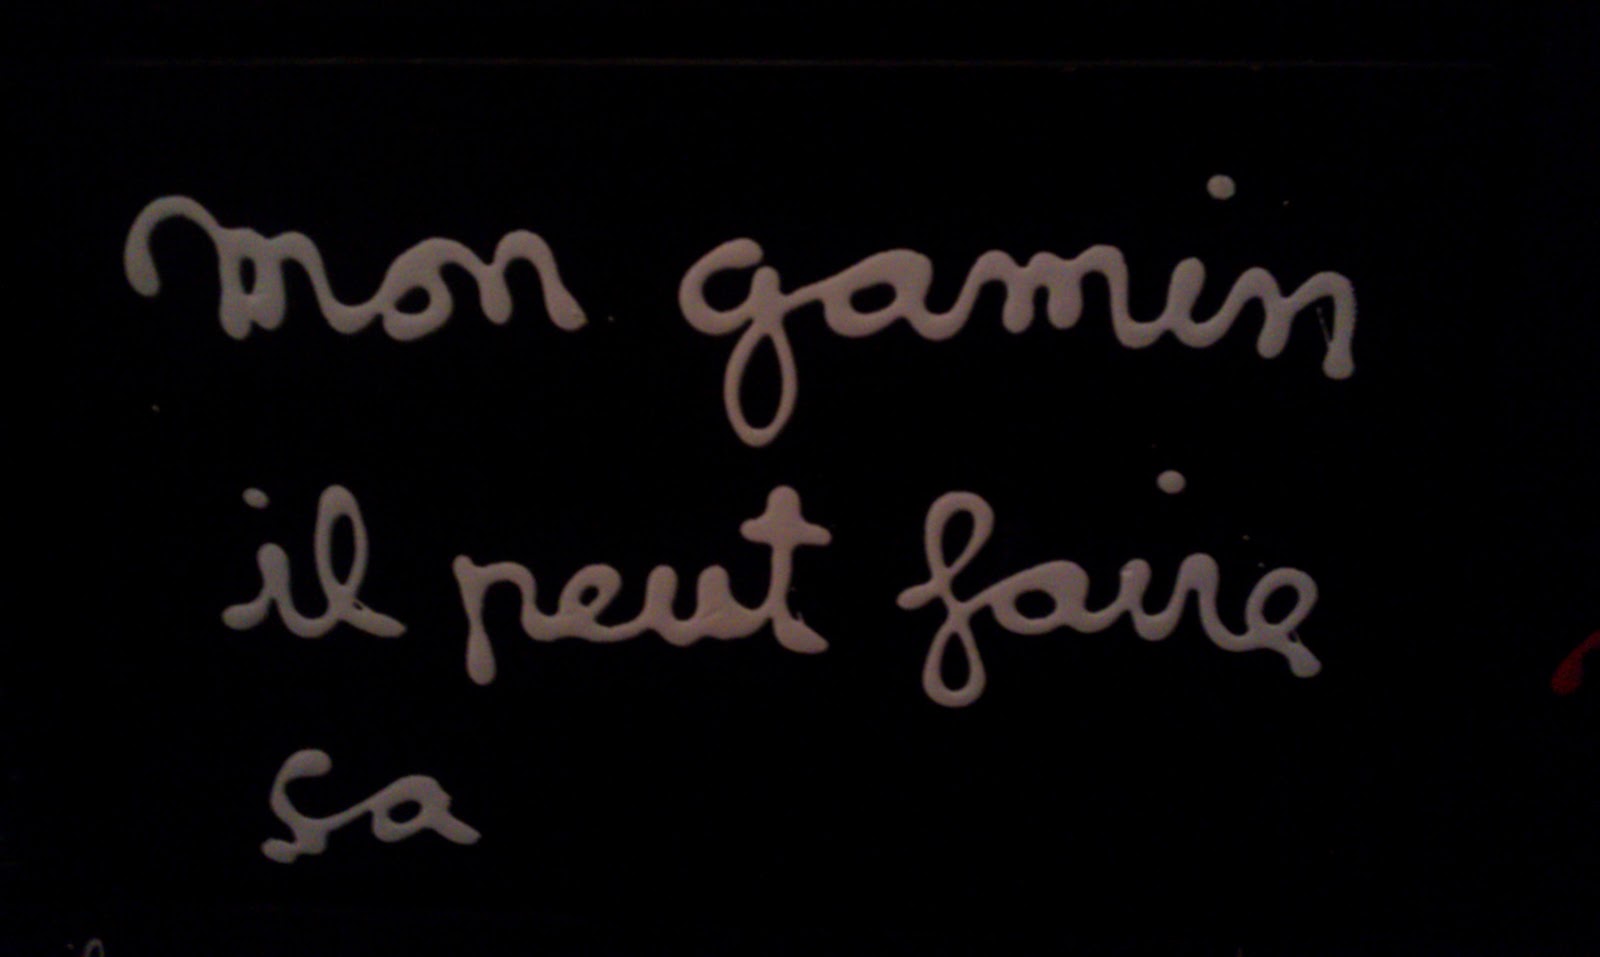 mon gamin
il peut faire
ça